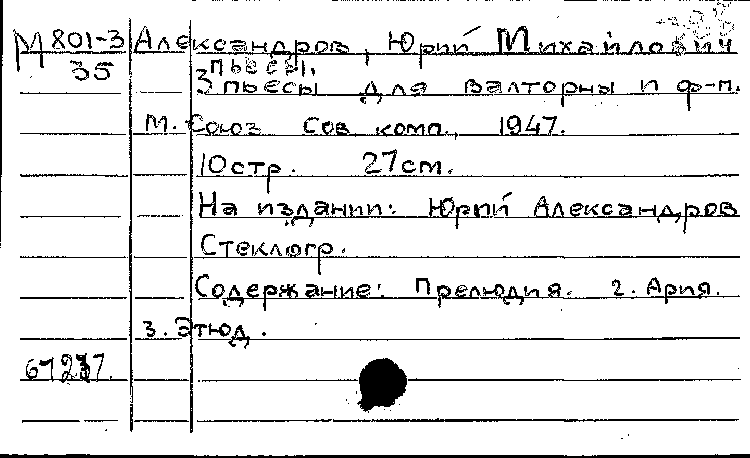 М 801-3 Александров, Юрий Михайлович
35 Пьесы.
3 пьесы для валторны и ф-п.
М. Союз Сов комп., 1947.
10 стр. 27 см.
На издании: Юрий Александров
Стеклогр.
Содержание: Прелюдия. 2. Ария.
3. Этюд.